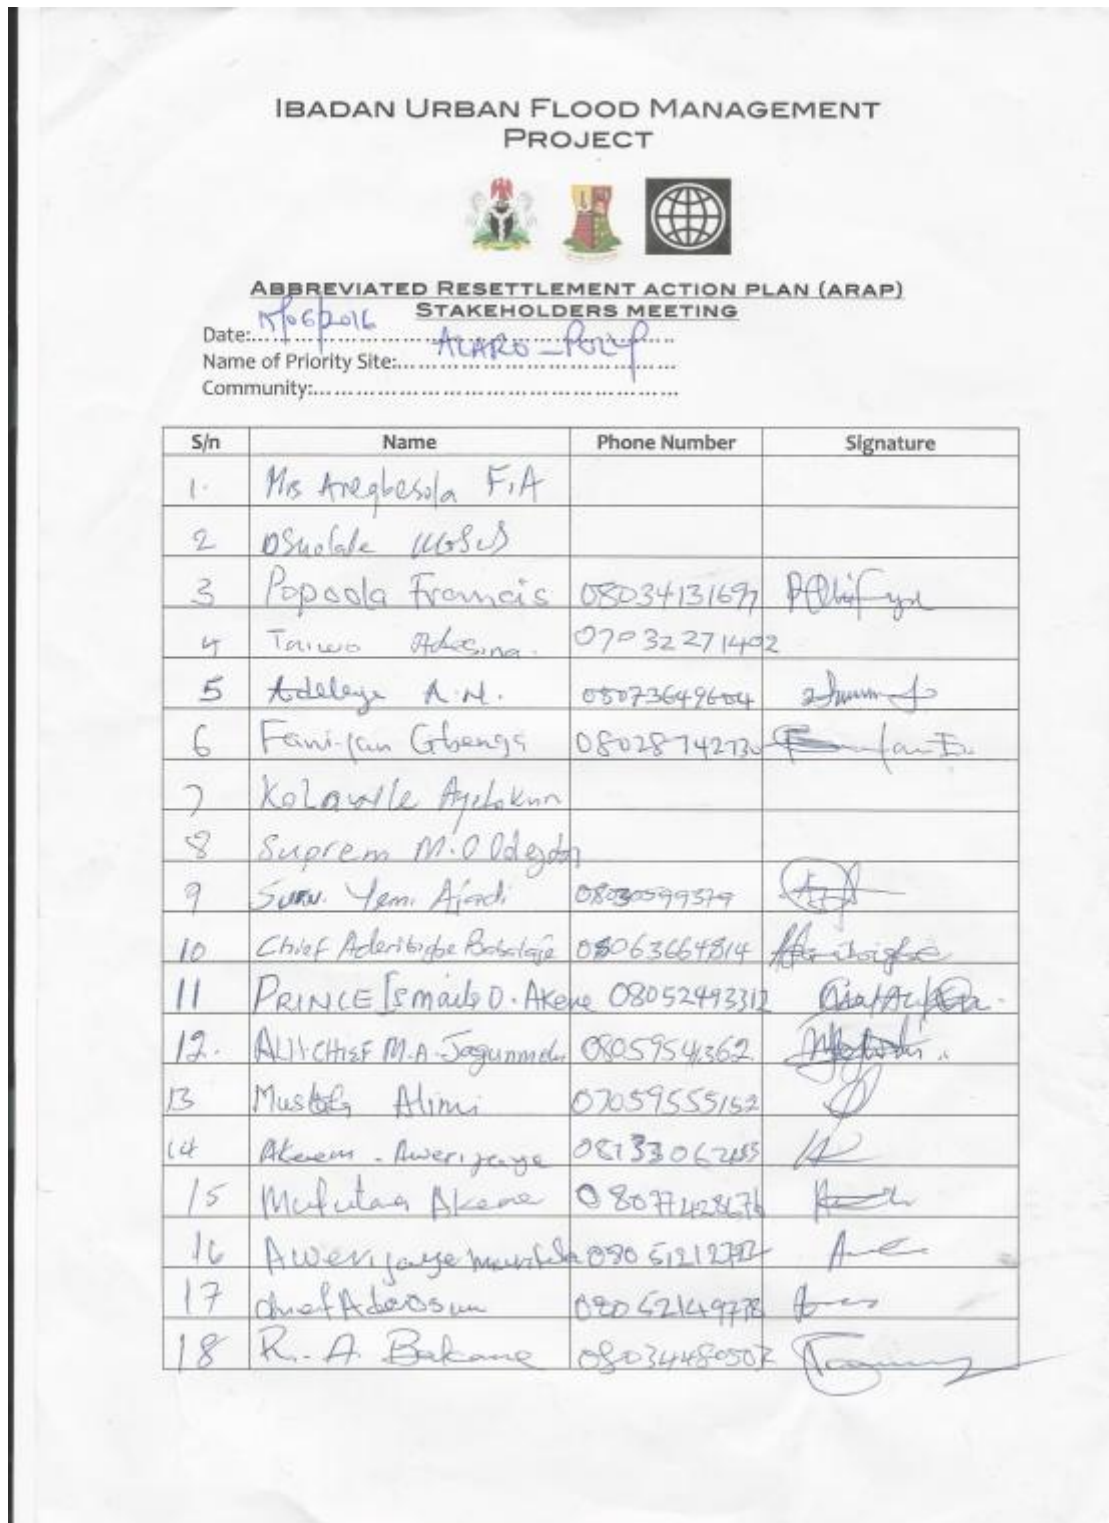 IBADAN URBAN FLOOD MANAGEMENT
PROJECT
ABBREVIATED RESETTLEMENT ACTION PLAN (ARAP)
STAKEHOLDERS MEETING
Date:... 15/06/2016
Name of Priority Site:... ALARO - POLY
Community:...
S/n Name Phone Number Signature
1. Mrs Aregbesola F.A
2 Osuolale
3 Popoola Francis 08034131697
4 Taiwo Adesina. 07032271402
5 Adeleye A.N. 08073649604
6 Fani-jan Gbenga
7 Kolawole Ayelokun
8 Suprem M.O
9 Surv. Yemi Ajadi 08030599379
10 Chief Aderibigbe Babalaje 08063664814
11 PRINCE Ismaila O. Akere 08052493312
12. ALH. CHIEF M.A. 08059541362
13 Mustafa Alimi 07059555152
14 Akeem - Awerijaye
15 Mufutau Akere
16 Awerijaye
17 Chief Aderosun 08052149778
18 R. A. Bakare 08034480507